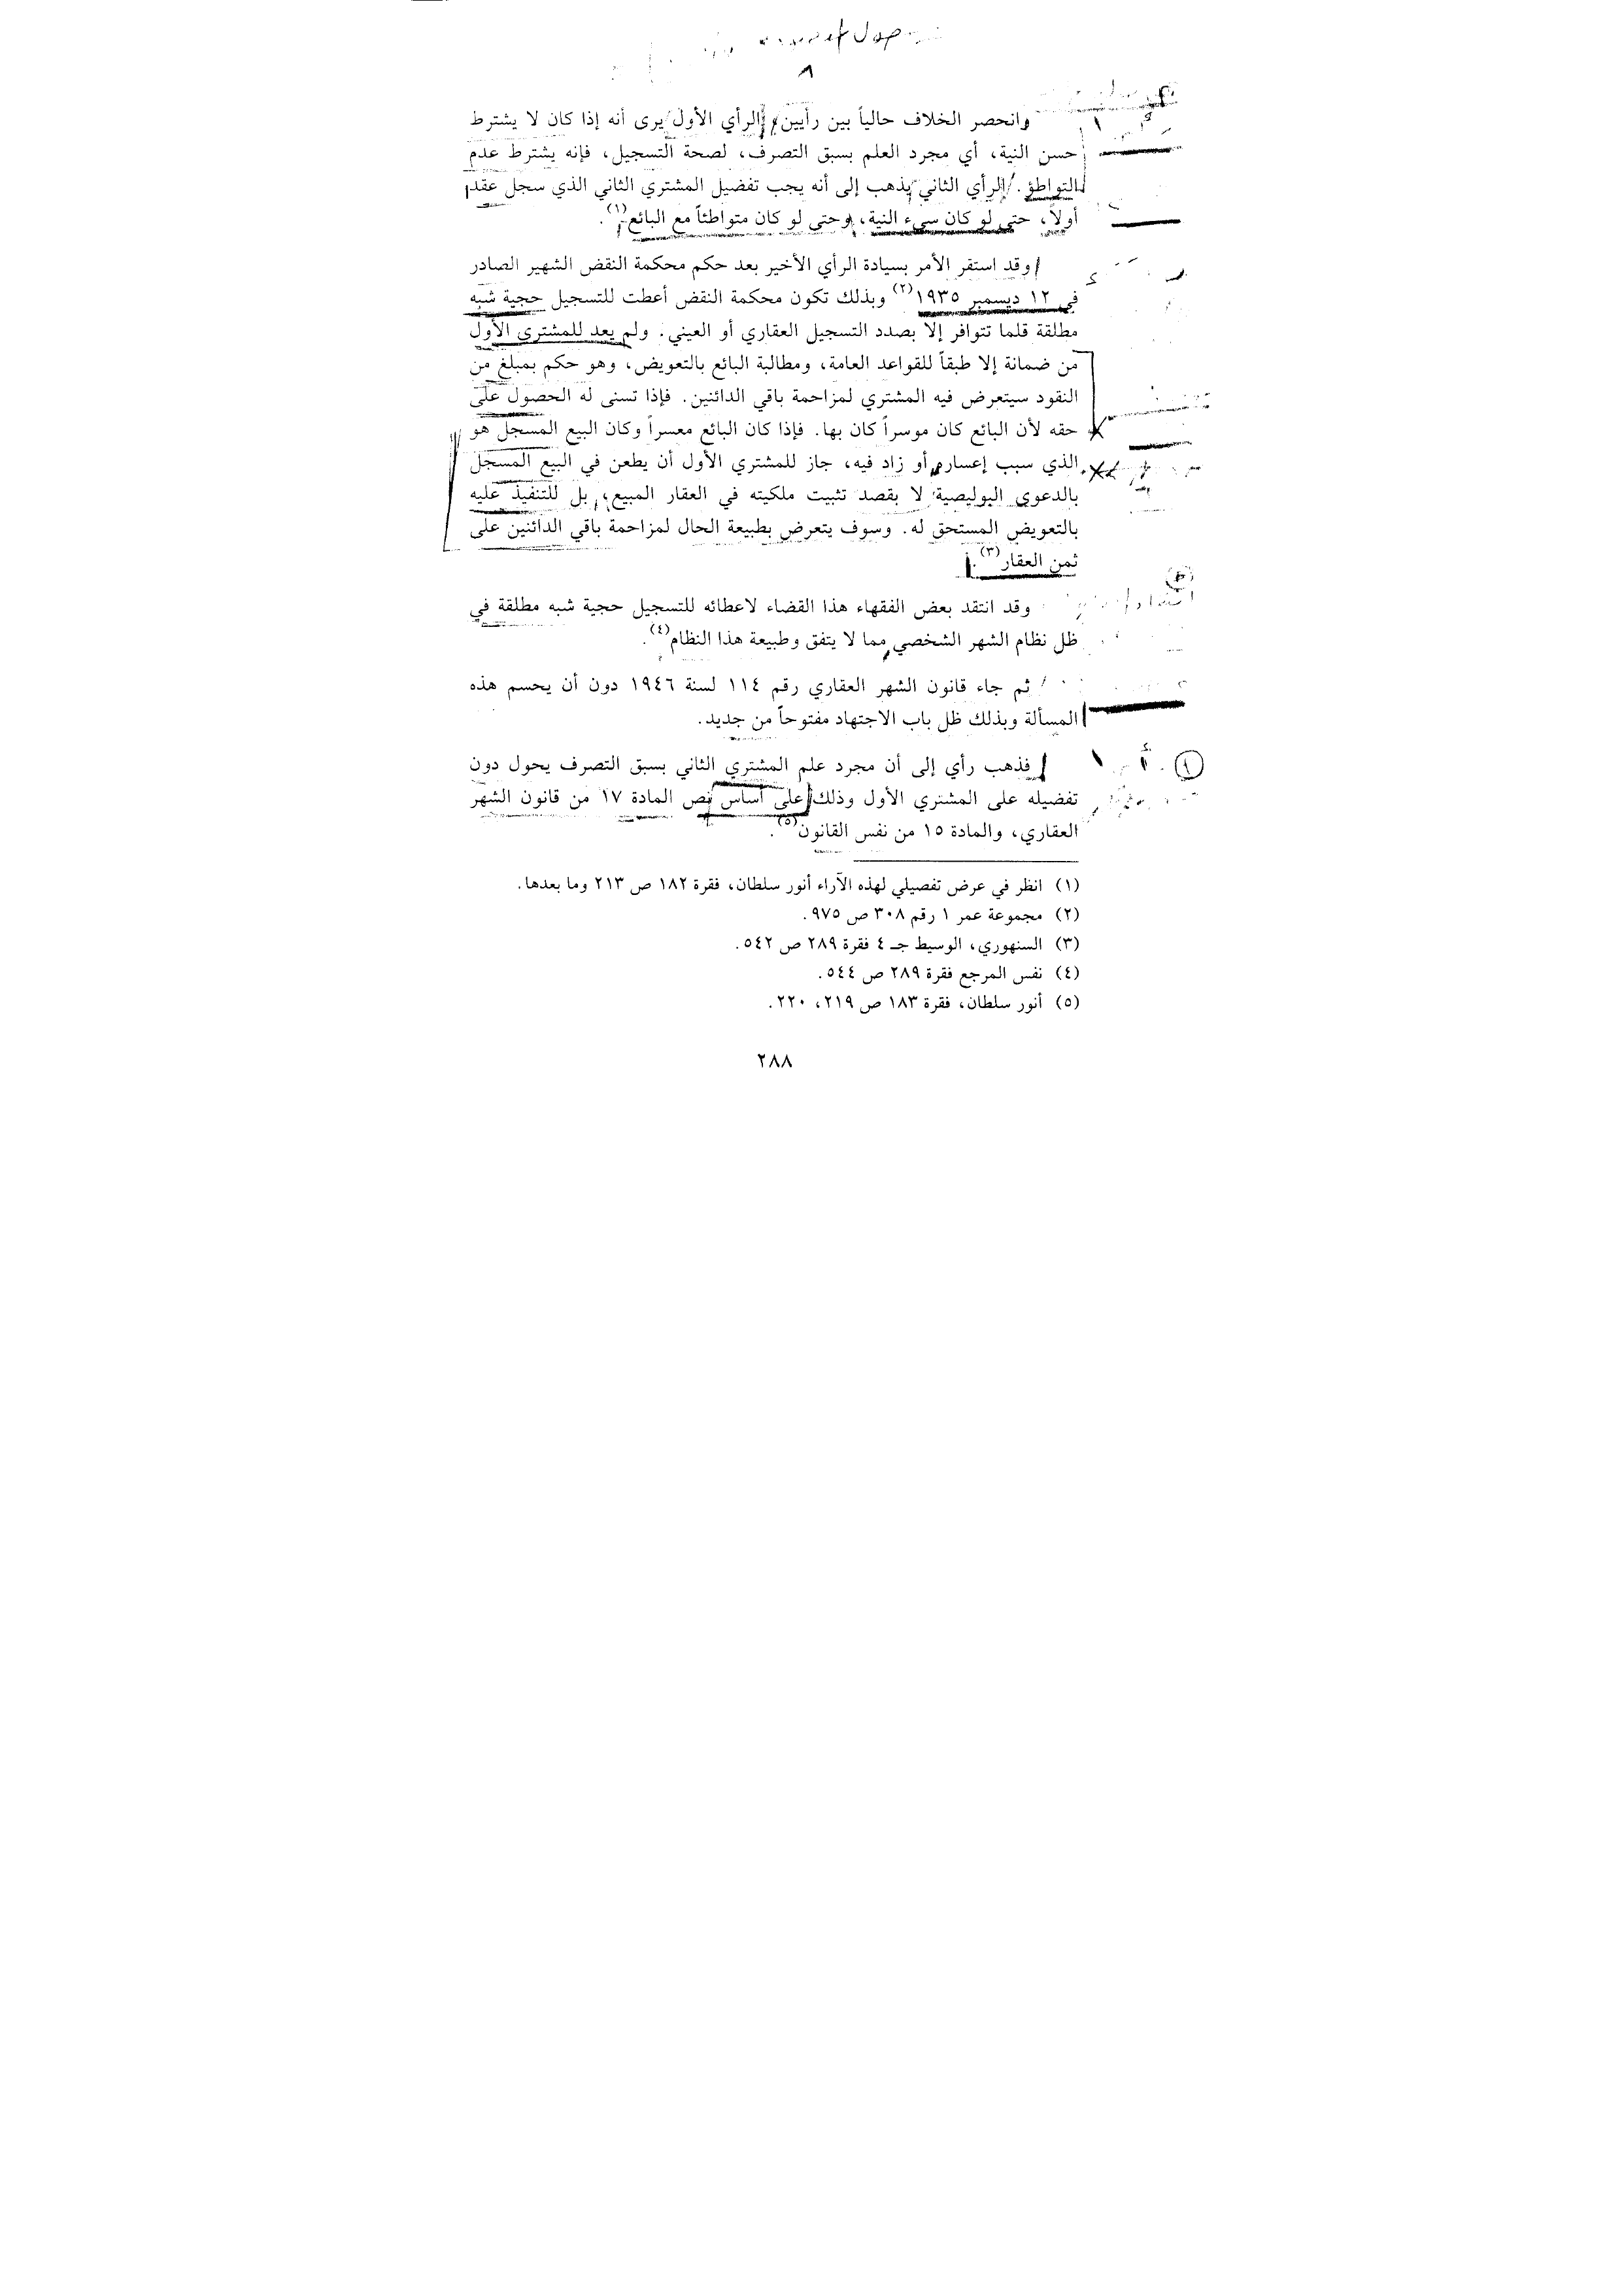 وانحصر الخلاف حالياً بين رأيين، الرأي الأول يرى أنه إذا كان لا يشترط
حسن النية، أي مجرد العلم بسبق التصرف، لصحة التسجيل، فإنه يشترط عدم
التواطؤ. الرأي الثاني يذهب إلى أنه يجب تفضيل المشتري الثاني الذي سجل عقده
أولاً، حتى لو كان سيء النية، وحتى لو كان متواطئاً مع البائع(١).
وقد استقر الأمر بسيادة الرأي الأخير بعد حكم محكمة النقض الشهير الصادر
في ١٢ ديسمبر ١٩٣٥(٢) وبذلك تكون محكمة النقض أعطت للتسجيل حجية شبه
مطلقة قلما تتوافر إلا بصدد التسجيل العقاري أو العيني. ولم يعد للمشتري الأول
من ضمانة إلا طبقاً للقواعد العامة، ومطالبة البائع بالتعويض، وهو حكم بمبلغ من
النقود سيتعرض فيه المشتري لمزاحمة باقي الدائنين. فإذا تسنى له الحصول على
حقه لأن البائع كان موسراً كان بها. فإذا كان البائع معسراً وكان البيع المسجل هو
الذي سبب إعساره أو زاد فيه، جاز للمشتري الأول أن يطعن في البيع المسجل
بالدعوى البوليصية لا بقصد تثبيت ملكيته في العقار المبيع، بل للتنفيذ عليه
بالتعويض المستحق له. وسوف يتعرض بطبيعة الحال لمزاحمة باقي الدائنين على
ثمن العقار(٣).
وقد انتقد بعض الفقهاء هذا القضاء لاعطائه للتسجيل حجية شبه مطلقة في
ظل نظام الشهر الشخصي مما لا يتفق وطبيعة هذا النظام(٤).
ثم جاء قانون الشهر العقاري رقم ١١٤ لسنة ١٩٤٦ دون أن يحسم هذه
المسألة وبذلك ظل باب الاجتهاد مفتوحاً من جديد.
فذهب رأي إلى أن مجرد علم المشتري الثاني بسبق التصرف يحول دون
تفضيله على المشتري الأول وذلك على أساس نص المادة ١٧ من قانون الشهر
العقاري، والمادة ١٥ من نفس القانون(٥).
(١) انظر في عرض تفصيلي لهذه الآراء أنور سلطان، فقرة ١٨٢ ص ٢١٣ وما بعدها.
(٢) مجموعة عمر ١ رقم ٣٠٨ ص ٩٧٥.
(٣) السنهوري، الوسيط جـ ٤ فقرة ٢٨٩ ص ٥٤٢.
(٤) نفس المرجع فقرة ٢٨٩ ص ٥٤٤.
(٥) أنور سلطان، فقرة ١٨٣ ص ٢١٩، ٢٢٠.
٢٨٨